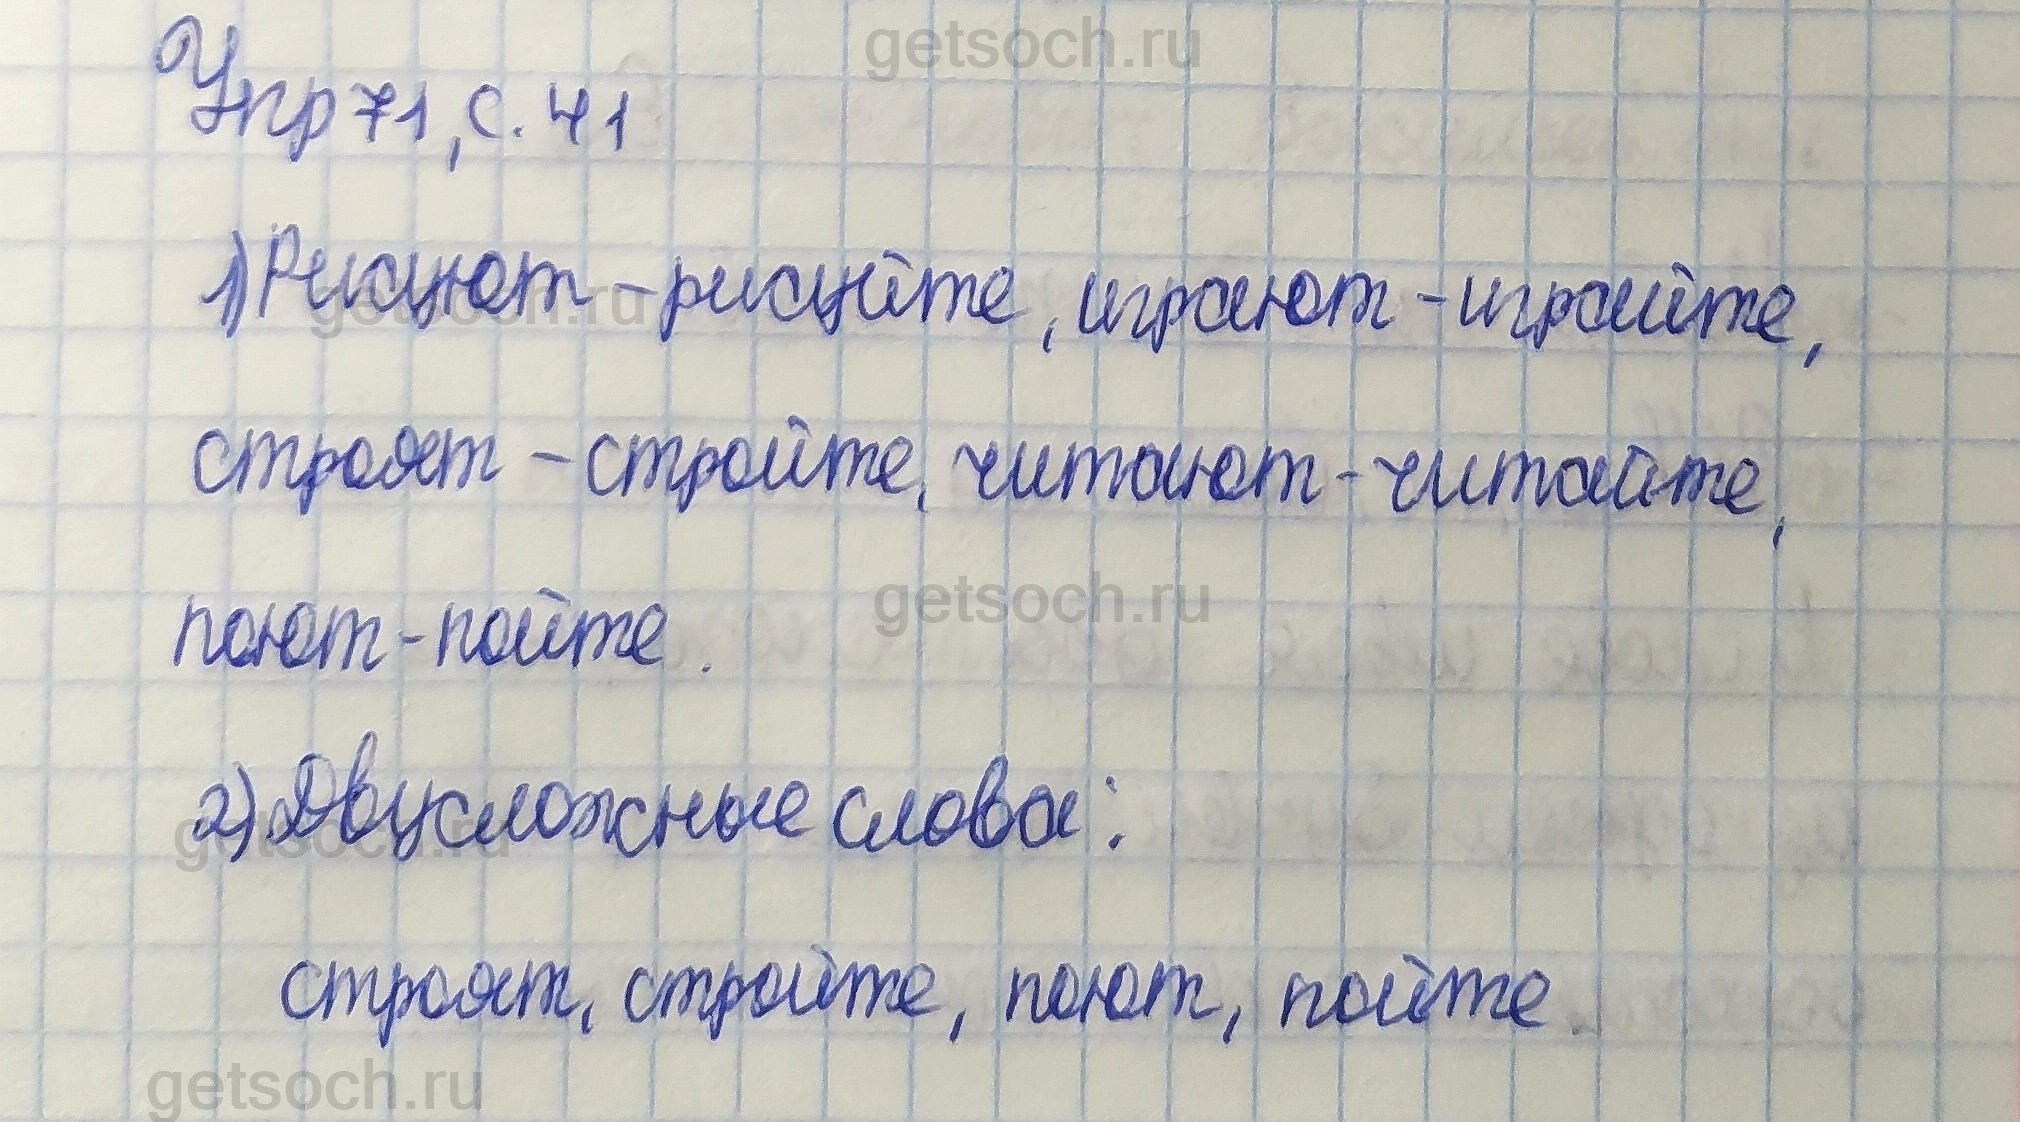 getsoch.ru
Упр 71, с. 41
1) Рисуют - рисуйте, играют - играйте,
getsoch.ru
строят - стройте, читают - читайте,
поют - пойте.
getsoch.ru
2) Двусложные слова:
getsoch.ru
строят, стройте, поют, пойте.
getsoch.ru